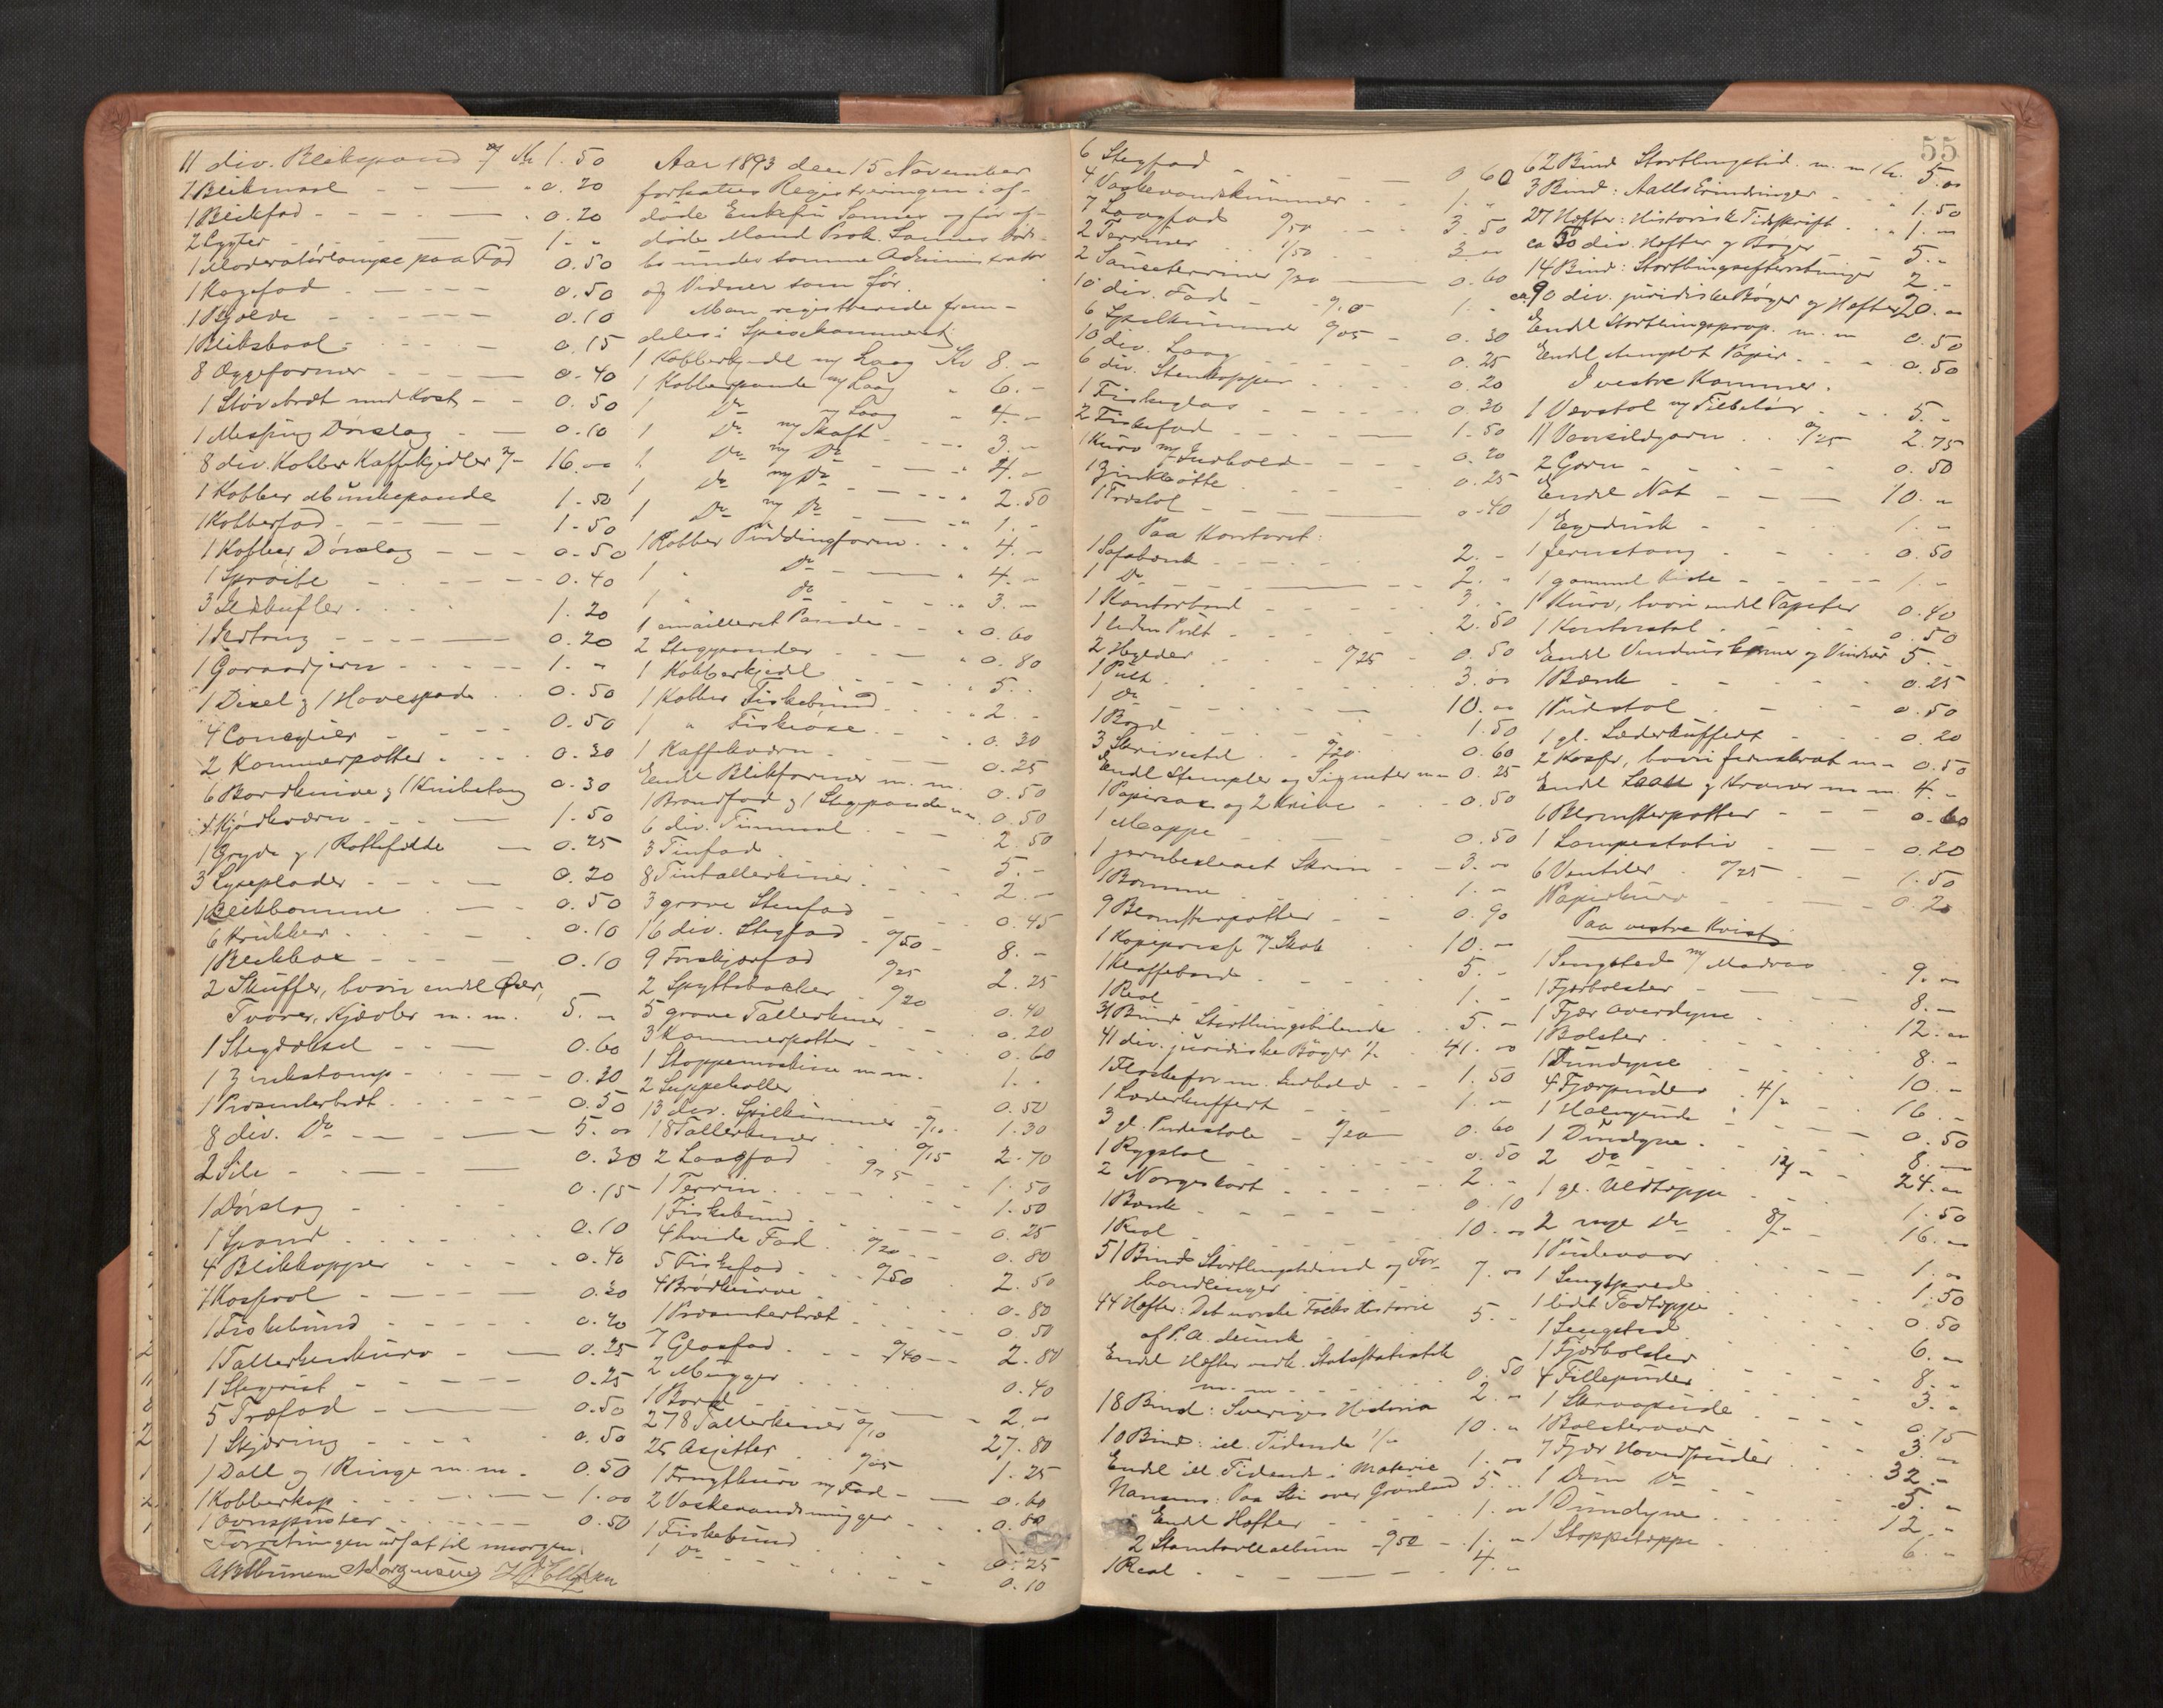 11 div. Blikspand Kr 1.50
1 Blikmaal - - - 0.20
1 Blikfad - - - 0.20
2 Lygter - - - 1. "
1 Moderatørlampe paa Fod 0.50
1 Kagefad - - - 0.50
1 Kjolde - - - 0.10
1 Blikskaal - - - 0.15
8 Æggeformer - - - 0.40
1 Støvebræt med Kost - - 0.50
1 Messing Dørslag - - 0.10
8 div. Kobber Kaffekjedler 2/- 16. "
1 Kobber Munkepande 1.50
1 Kobberfad - - - 1.50
1 Kobber Dørslag - - - 0.50
1 Sprøite - - - 0.40
3 Ildskufler - - - 1.20
1 Ildtang - - - 0.20
1 Goraadjern - - - 1. "
1 Dixel og 1 Havespade 0.50
4 - - - 0.50
2 Kammerpotter - - 0.30
6 Bordknive og 1 Knibetang 0.30
1 Kjødkværn - - - 1.50
1 Gryde og 1 Rottefælde - 0.25
3 Lyseplader - - - 0.20
1 Blikbomme - - - 0.50
6 Krukker - - - 0.10
1 Blikbox - - - 0.10
2 Skuffer, hvori endel Øser,
Tvarer, Kjævler m. m. 5. "
1 - - - 0.60
1 Zinkstamp - - - 0.20
1 Præsenterbræt - - - 0.50
8 div. Do - - - 5. "
2 Sile - - - 0.30
1 Dørslag - - - 0.15
1 Spand - - - 0.10
4 Blikkopper - - - 0.40
1 - - - 0.20
1 Fiskebund - - - 0.20
1 Tallerkenkurv - - - 0.25
1 Stegerist - - - 0.25
5 Træfad - - - 0.50
1 Skjæring - - - 0.50
1 Dall og 1 Ringe m. m. 0.50
1 Kobberkop - - - 1.00
1 Ovnspuster - - - 0.50
Forretningen udsat til imorgen.
Aar 1893 den 15 November
fortsattes Registreringen i af-
døde Enkefru Sannes og før af-
døde Mand Prok. Sannes Døds-
bo under samme Administrator
og Vidner som før.
Man registrerede frem-
deles i Spisekammeret:
1 Kobberkjedl m/ Laag Kr 8. "
1 Kobberpande m/ Laag " 6. "
1 Do m/ Laag " 4. "
1 Do m/ Skaft - - 3. "
1 Do m/ Do - - 4. "
1 Do m/ Do - - 2.50
1 Do m/ Do - - 1. "
1 Kobber Puddingform - - 4. "
1 " Do - - 4. "
1 " Do - - 3. "
1 emailleret Pande - - 0.60
2 Stegepander - - 0.80
1 Kobberkjedl - - 5. "
1 Kobber Fiskebund - - 2. "
1 " Fiskeøse - - 0.30
1 Kaffekværn - - 0.25
Endel Blikformer m. m. 0.50
1 Brandfad og 1 Stegepande m.m. 0.50
6 div. Tinmaal - - 2.50
3 Tinfad - - 5. "
8 Tintallerkener - - 2. "
3 grove Stenfad - - 0.45
16 div. Stegfad - 0/50 - 8. "
9 Forskjærfad 0/25 2.25
2 Spyttebakker - 0/20 0.40
5 grove Tallerkener - 0.20
3 Kammerpotter - - 0.60
1 Stoppemaskine m.m. 1. "
2 Suppeboller - - 0.50
13 div. Spilkummer - 0/10 - 1.30
18 Tallerkener 0/15 2.70
2 Laagfad - 0/75 - 1.50
1 Terrin - - 1.50
1 Fiskebund - - 0.25
4 hvide Fad 0/20 - - 0.80
5 Fiskefad 0/50 2.50
4 Brødkurve - - 0.80
1 Præsenterbræt - - 0.50
7 Glasfad - - 0/40 - - 2.80
2 Mugger - - 0.40
1 Bord - - 2. "
278 Tallerkener 0/10 27.80
25 Asjetter 0/05 1.25
1 Frugtkurv m/ Fad - - 0.60
2 Vaskevandsmugger - - 0.80
1 Fiskebund - - 0.25
1 Do - - 0.10
55
6 Stegfad - - - 0.60
4 Vaskevandskummer - - 1. "
7 Laagfad 0/50 - - 3.50
2 Terriner 1/50 - - 3. "
2 Sauseterriner 0/30 - 0.60
10 div. Fad - - 0/10 1. "
6 Spilkummer 0/05 - 0.30
10 div. Laag - - 0.25
6 div. Stenkopper - - 0.20
1 Fiskeglas - - - 0.30
2 Fiskefad - - - 1.50
1 Kurv m/ Indhold - - 0.20
1 Zinkbøtte - - 0.25
1 Træstol - - - 0.40
Paa Kontoret:
1 Sofabænk - - - 2. "
1 Do - - - 2. "
1 Kontorbord - - - 3. "
1 liden Pult - - - 2.50
2 Hylder - - 0/25 - 0.50
1 Pult - - - 3. "
1 Do - - - 10. "
1 Bord - - - 1.50
3 Skrivestel - - 0/20 0.60
Endel Stempler og Signeter m.m. 0.25
1 Papirsax og 2 Knive - - 0.50
1 Mappe - - - 0.50
1 jernbeslaaet Skrin - - 3. "
1 Bomme - - - 1. "
9 Blomsterpotter - - 0.90
1 Kopipresse m/ Skab 10. "
1 Klaffebord - - - 5. "
1 Reol - - - 1. "
31 Bind Storthingstidende - 5. "
41 div. juridiske Bøger 1/- 41. "
1 Flaskefor m. Indhold - - 1.50
1 Læderkuffert - - 1. "
3 gl. Pudestole - 0/20 - 0.60
1 Rygstol - - - 0.50
2 Norgeskart - - - 2. "
1 Bænk - - - 0.10
1 Reol - - - 10. "
51 Bind Storthingstidend og For-
handlinger - - - 7. "
44 Hefter: Det norske Folks Historie
af P. A. Munch - - 5. "
Endel Hefter vedk. Statsstatistik
m. m. - - - 0.50
18 Bind: Sveriges Historia 2. "
10 Bind: ill. Tidende 1/- 10. "
Endel ill. Tidende i Materie 1. "
Nansens: Paa Ski over Grønland 5. "
Endel Hefter - - - 1. "
2 Stamtavlealbum - 0/50 - 1. "
1 Reol - - - 4. "
62 Bind Storthingstid. m. m. Kr. 5. "
3 Bind: Aalls Erindringer - - 1.50
27 Hefter: Historisk Tidsskrift - - 1. "
ca 50 div. Hefter og Bøger - - 5. "
14 Bind: Storthingsefterretninger 2. "
ca. 90 div. juridiske Bøger og Hefter 20. "
Endel Storthingsprop. m. m 0.50
Endel stemplet Papir - - 0.50
I vestre Kammer.
1 Vævstol m/ Tilbehør - - 5. "
11 Vaarsildgarn - - 0/25 2.75
2 Garn - - - 0.50
Endel Not - - - 10. "
1 Egedunk - - - 1. "
1 Jernstang - - - 0.50
1 gammel Kiste - - - 1. "
1 Kurv, hvori endel Tapeter 0.40
1 Kontorstol - - - 0.50
Endel Vinduiskarmer og Vinduer 5. "
1 Bænk - - - 0.25
1 Pudestol - - - 0.50
1 gl. Læderkuffert - - 0.20
2 Kasser, hvori jernskrot m.m. 0.50
Endel Laase og Kraner m.m. 4. "
6 Blomsterpotter - - 0.60
1 Lampestativ - - 0.20
6 Ventiler 0/25 - - 1.50
1 Papirkurv - - 0.20
Paa vestre Kvist:
1 Sengested m/ Madras - - 9. "
1 Fjærbolster - - 8. "
1 Fjær overdyne - - 12. "
1 Bolster - - - 8. "
1 Dundyne - - - 10. "
4 Fjærpuder - 4/- - 16. "
1 Halmpude - - - 0.50
1 Dundyne - - - 8. "
2 Do - - 12/- - 24. "
1 gl. Uldteppe - - 1.50
2 nye Do - 8/- - 16. "
1 Pudevaar - - - 1. "
1 Sengspred - - - 1.50
1 lidet Fodteppe - - 0.50
1 Sengsted - - - 6. "
1 Fjærbolster - - 8. "
4 Fillepuder - - 3. "
1 Skraapude - - 0.75
1 Bolstervaar - - 3. "
7 Fjær Hovedpuder - - 32. "
1 Dun Do - - 5. "
1 Dundyne - - 12. "
1 Stoppeteppe - - 6. "